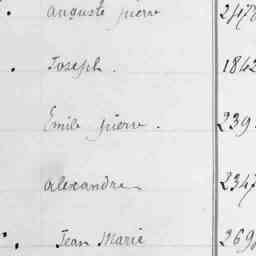 Auguste pierre
Joseph. 1842
Emile pierre. 239
alexandre 2347
Jean Marie 269